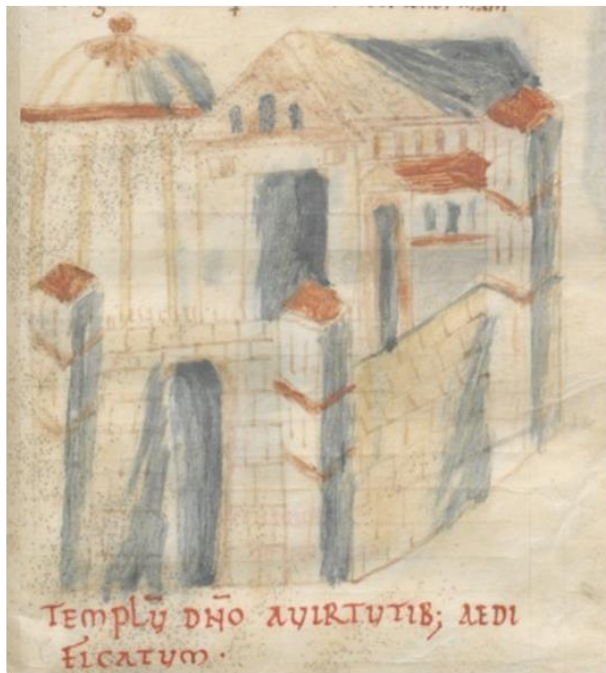 TEMPLŪ DÑO AUIRTUTIB; AEDI
FICATUM ·